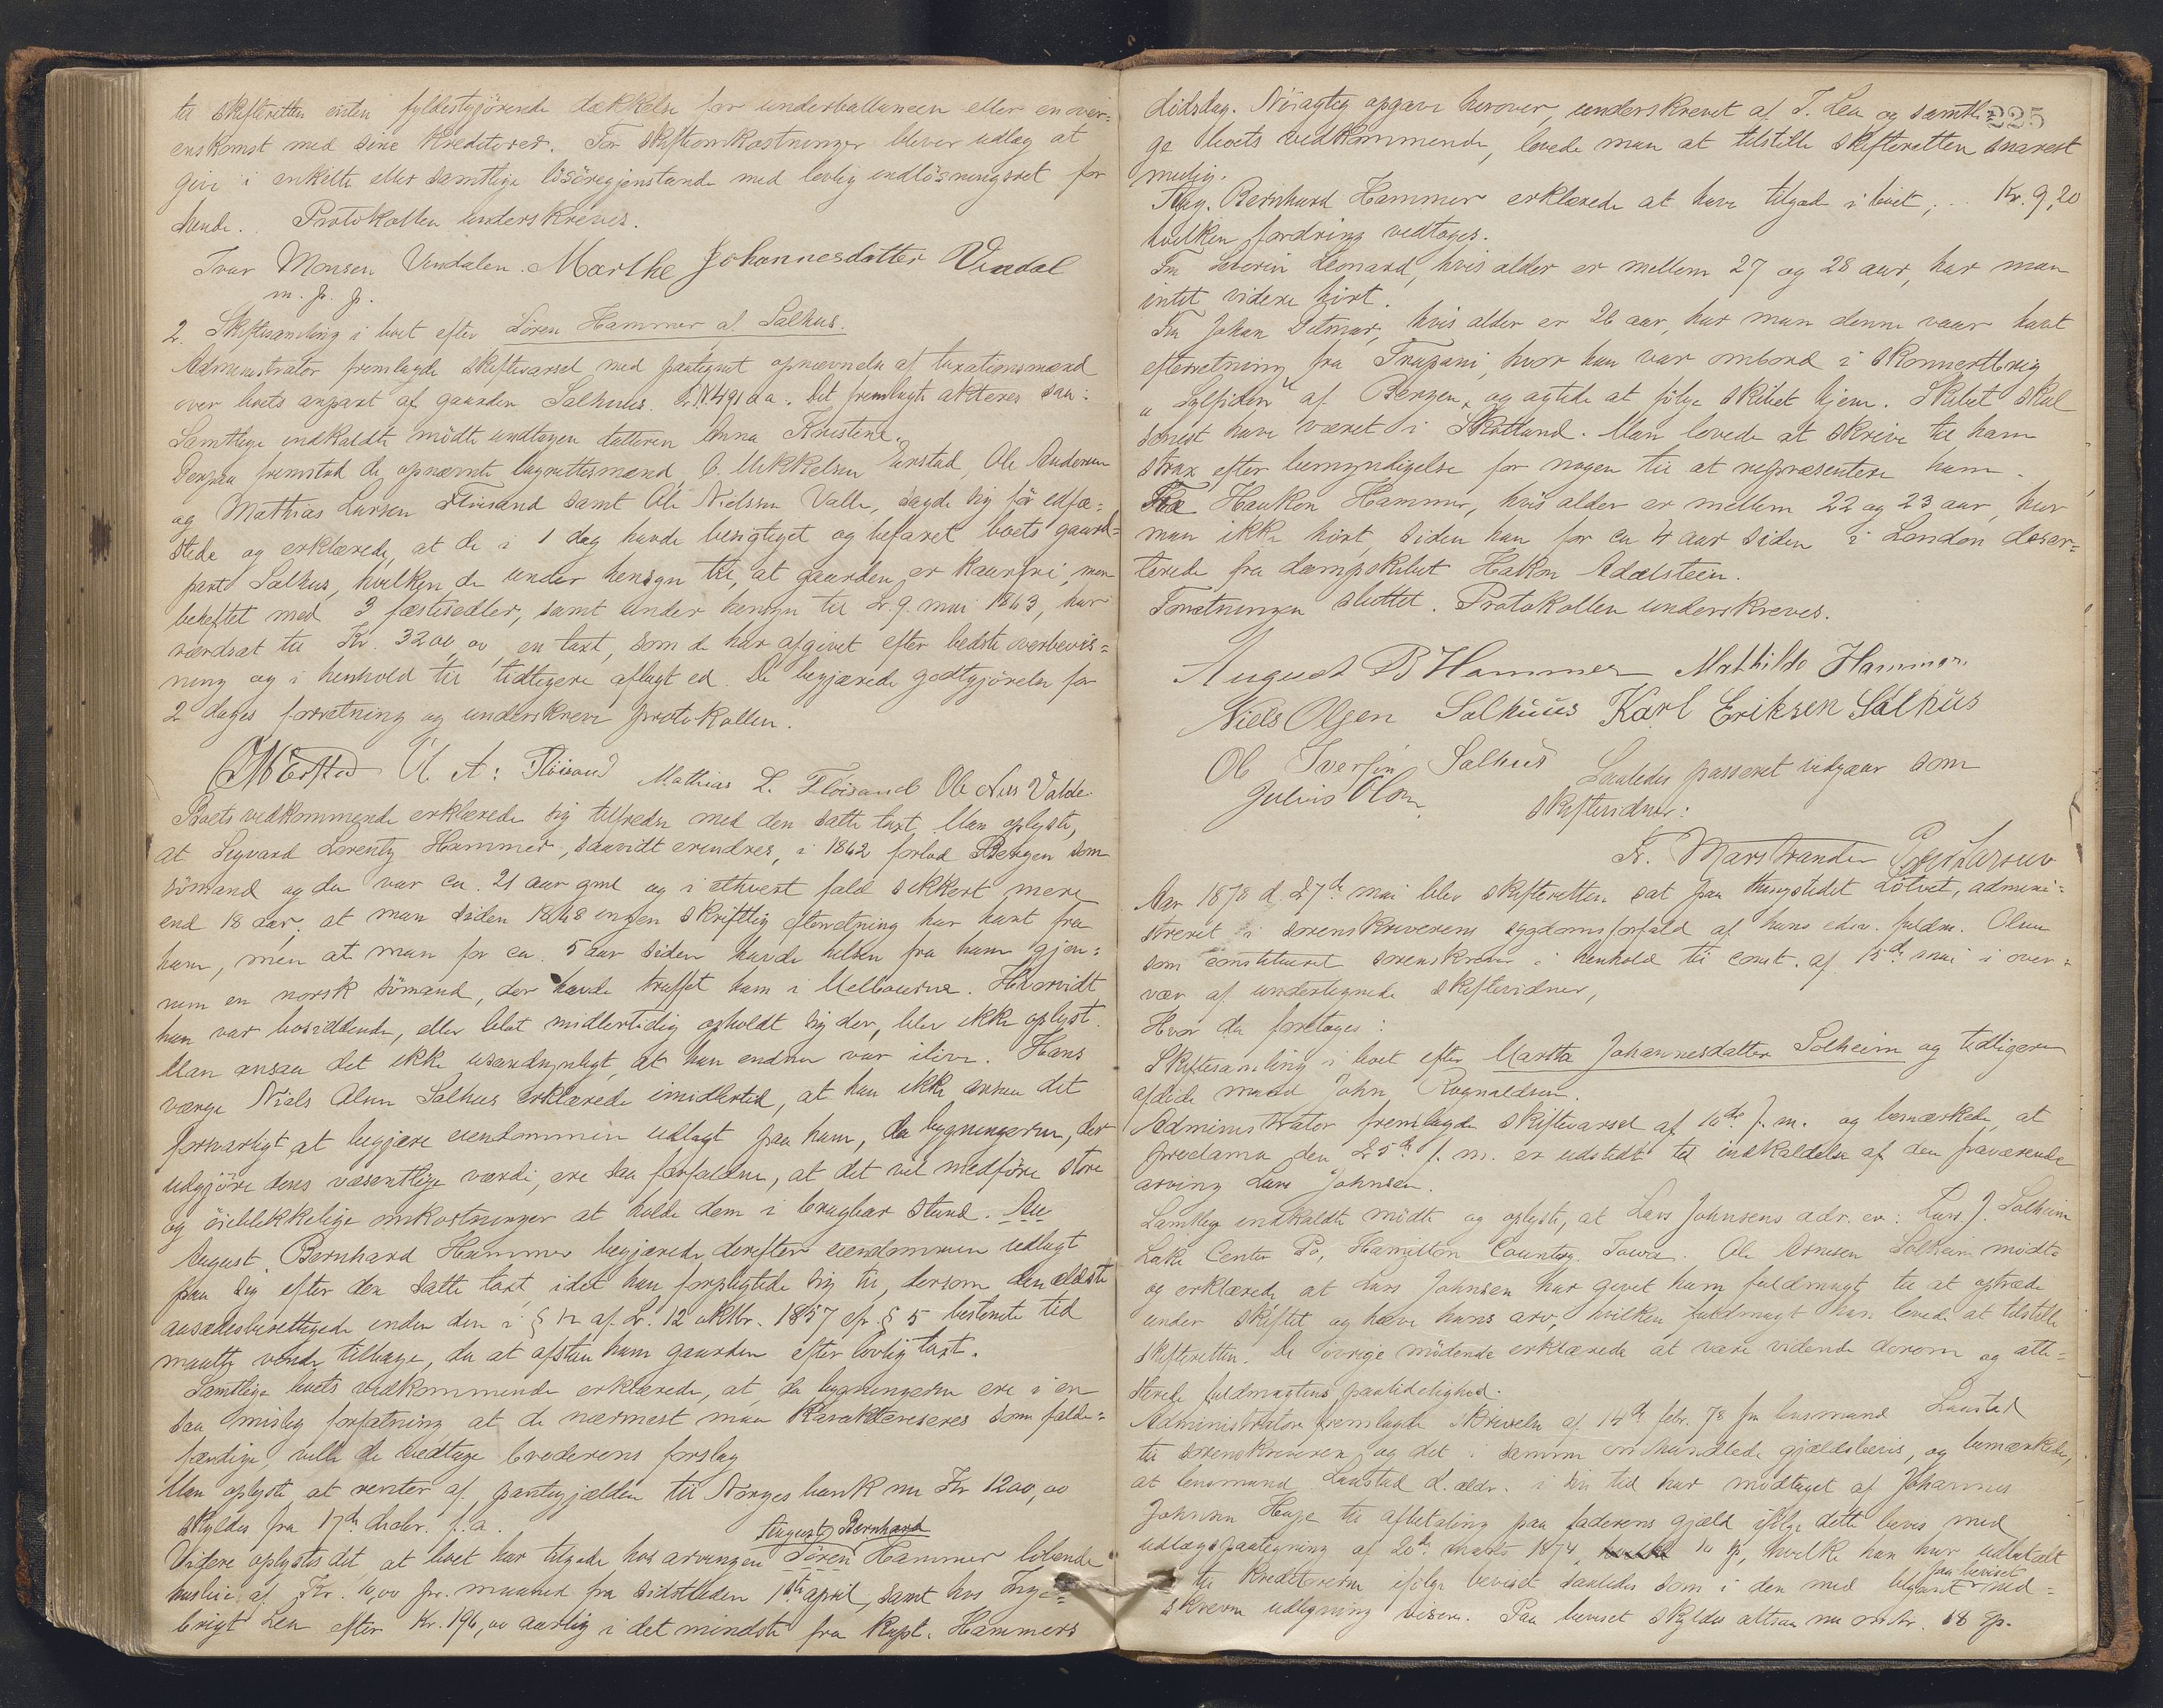 til skifteretten enten fyldestgjørende dækkelse for underballancen eller en over-
enskomst med sine kreditorer. For skifteomkostninger bliver udlæg at
give i enkelte eller samtlige løsøregjenstande med lovlig indløsningsret for
hende. Protokollen underskreves.
Ivar Monsen Vindalen. Marthe Johannesdatter Vindal
m. p. p.
2. Skiftesamling i boet efter Søren Hammer af Salhus.
Administrator fremlagde skiftevarsel med paategnet opnævnelse af taxationsmænd
over boets anpart af gaarden Salhus. Det fremlagte akteres saa:
Samtlige indkaldte mødte undtagen datteren Anna Kristine.
Derpaa fremstod de opnævnte lagrettesmænd, O. Mikkelsen Eirstad, Ole Andersen
og Mathias Larsen Fløisand samt Ole Nielsen Valle, sagde sig før edfæ-
stede og erklærede, at de i 1 dag havde besigtiget og befaret boets gaard-
part Salhus, hvilken de under hensyn til, at gaarden er kaarfri, men
beheftet med 3 fæstesedler, samt under hensyn til L. 9 mai 1863, har
værdsat til Kr. 3200,00, en taxt, som de har afgivet efter bedste overbevis-
ning og i henhold til tidligere aflagt ed. De begjærede godtgjørelse for
2 dages forretning og underskrev protokollen.
O. A: Fløisand Mathias L. Fløisand Ole Nils Valde
Boets vedkommende erklærede sig tilfredse med den satte taxt. Man oplyste,
at Sigvard Lorentz Hammer, saavidt erindres, i 1862 forlod Bergen som
sømand og da var ca. 21 aar gml og i ethvert fald sikkert mere
end 18 aar; at man siden 1868 ingen skriftlig efterretning har havt fra
ham, men at man for ca. 5 aar siden havde hilsen fra ham gjen-
nem en norsk sømand, der havde truffet ham i Melbourne. Hvorvidt
han var bosiddende, eller blot midlertidig opholdt sig der, blev ikke oplyst.
Man ansaa det ikke usandsynligt, at han endnu var ilive. Hans
værge Niels Olsen Salhus erklærede imidlertid, at han ikke ansaa det
forsvarligt at begjære eiendommen udlagt paa ham, da bygningerne, der
udgjøre dens væsentlige værdi, ere saa forfaldne, at det vil medføre store
og øieblikkelige omkostninger at holde dem i brugbar stand. Au
August Bernhard Hammer begjærede derefter eiendommen udlagt
paa sig efter den satte taxt, idet han forpligtede sig til, dersom den ældste
aasædesberettigede inden den i § 12 af L. 12 oktbr. 1857 cfr. § 5 bestemte tid
maatte vende tilbage, da at afstaa ham gaarden efter lovlig taxt.
Samtlige boets vedkommende erklærede, at, da bygningerne ere i en
saa mislig forfatning at de nærmest maa karakteriseres som falde-
færdige, ville de vedtage broderens forslag.
Man oplyste at renter af pantegjælden til Norges bank nu Kr 1200,00
skyldes fra 17de decbr. f. a.
August Bernhard
Videre oplystes det at boet har tilgode hos arvingen Søren Hammer løbende
husleie af Kr. 10,00 pr. maaned fra sidstleden 1ste april, samt hos Inge-
brigt Lea efter Kr. 196,00 aarlig i det mindste fra Kapt. Hammers
225
dødsdag. Nøiagtig opgave herover, underskrevet af I. Lea og samtli-
ge boets vedkommende, lovede man at tilstille skifteretten snarest
mulig.
Aug. Bernhard Hammer erklærede at have tilgode i boet, .. Kr. 9,20
hvilken fordring vedtoges.
Fra Severin Leonard, hvis alder er mellem 27 og 28 aar, har man
intet videre hørt.
Fra Johan Ditmar, hvis alder er 26 aar, har man denne vaar havt
efterretning fra Trapani, hvor han var ombord i skonnertbrig
"Sylfiden" af Bergen, og agtede at følge skibet hjem. Skibet skal
senest have været i Skotland. Man lovede at skrive til ham
strax efter bemyndigelse for nogen til at repræsentere ham.
Fra Haakon Hammer, hvis alder er mellem 22 og 23 aar, har
man ikke hørt, siden han for ca 4 aar siden i London deser-
terede fra dampskibet Hakon Adelsteen.
Forretningen sluttet. Protokollen underskreves.
August B Hammer Mathilde Hammer
Niels Olsen Salhuus Karl Eriksen Salhus
Ole Iversen Salhus Saaledes passeret vidgaar som
Julius Olsen skiftevidner:
Fr. Marstrander
Aar 1878 d. 27de mai blev skifteretten sat paa thingstedet Løtvet, admini-
streret i sorenskriverens sygdomsforfald af hans edsv. fuldm. Olsen
som constitueret sorenskriver i henhold til const. af 15de mai i over-
vær af undertegnede skiftevidner,
Hvor da foretoges:
Skiftesamling i boet efter Martha Johannesdatter Solheim og tidligere
afdøde mand John Rognaldsen.
Administrator fremlagde skiftevarsel af 10de f. m. og bemærkede, at
proclama den 25de f. m. er udstedt til indkaldelse af den fraværende
arving Lars Johnsen.
Samtlige indkaldte mødte og oplyste, at Lars Johnsens adr. er: Lars J. Solheim
Lake Center Po, Hamilton County Iowa. Ole Arnesen Solheim mødte
og erklærede at Lars Johnsen har givet ham fuldmagt til at optræde
under skiftet og hæve hans arv, hvilken fuldmagt han lovede at tilstille
skifteretten. De øvrige mødende erklærede at være vidende derom og atte-
sterede fuldmagtens paalidelighed.
Administrator fremlagde skrivelse af 14de febr. 78 fra lensmand Laustad
til sorenskriveren og det i samme omhandlede gjældsbevis, og bemærkede,
at lensmand Laustad d. ældr. i sin tid har modtaget af Johannes
Johnsen Hage til afbetaling paa faderens gjæld ifølge dette bevis med
udlægspaategning af 20de marts 1874, 10 sp, hvilke han har udbetalt
paa beviset
til kreditorerne ifølge beviset saaledes som i den med blyant ned-
skrevne udligning vises. Paa beviset skyldes altsaa nu 68 sp.